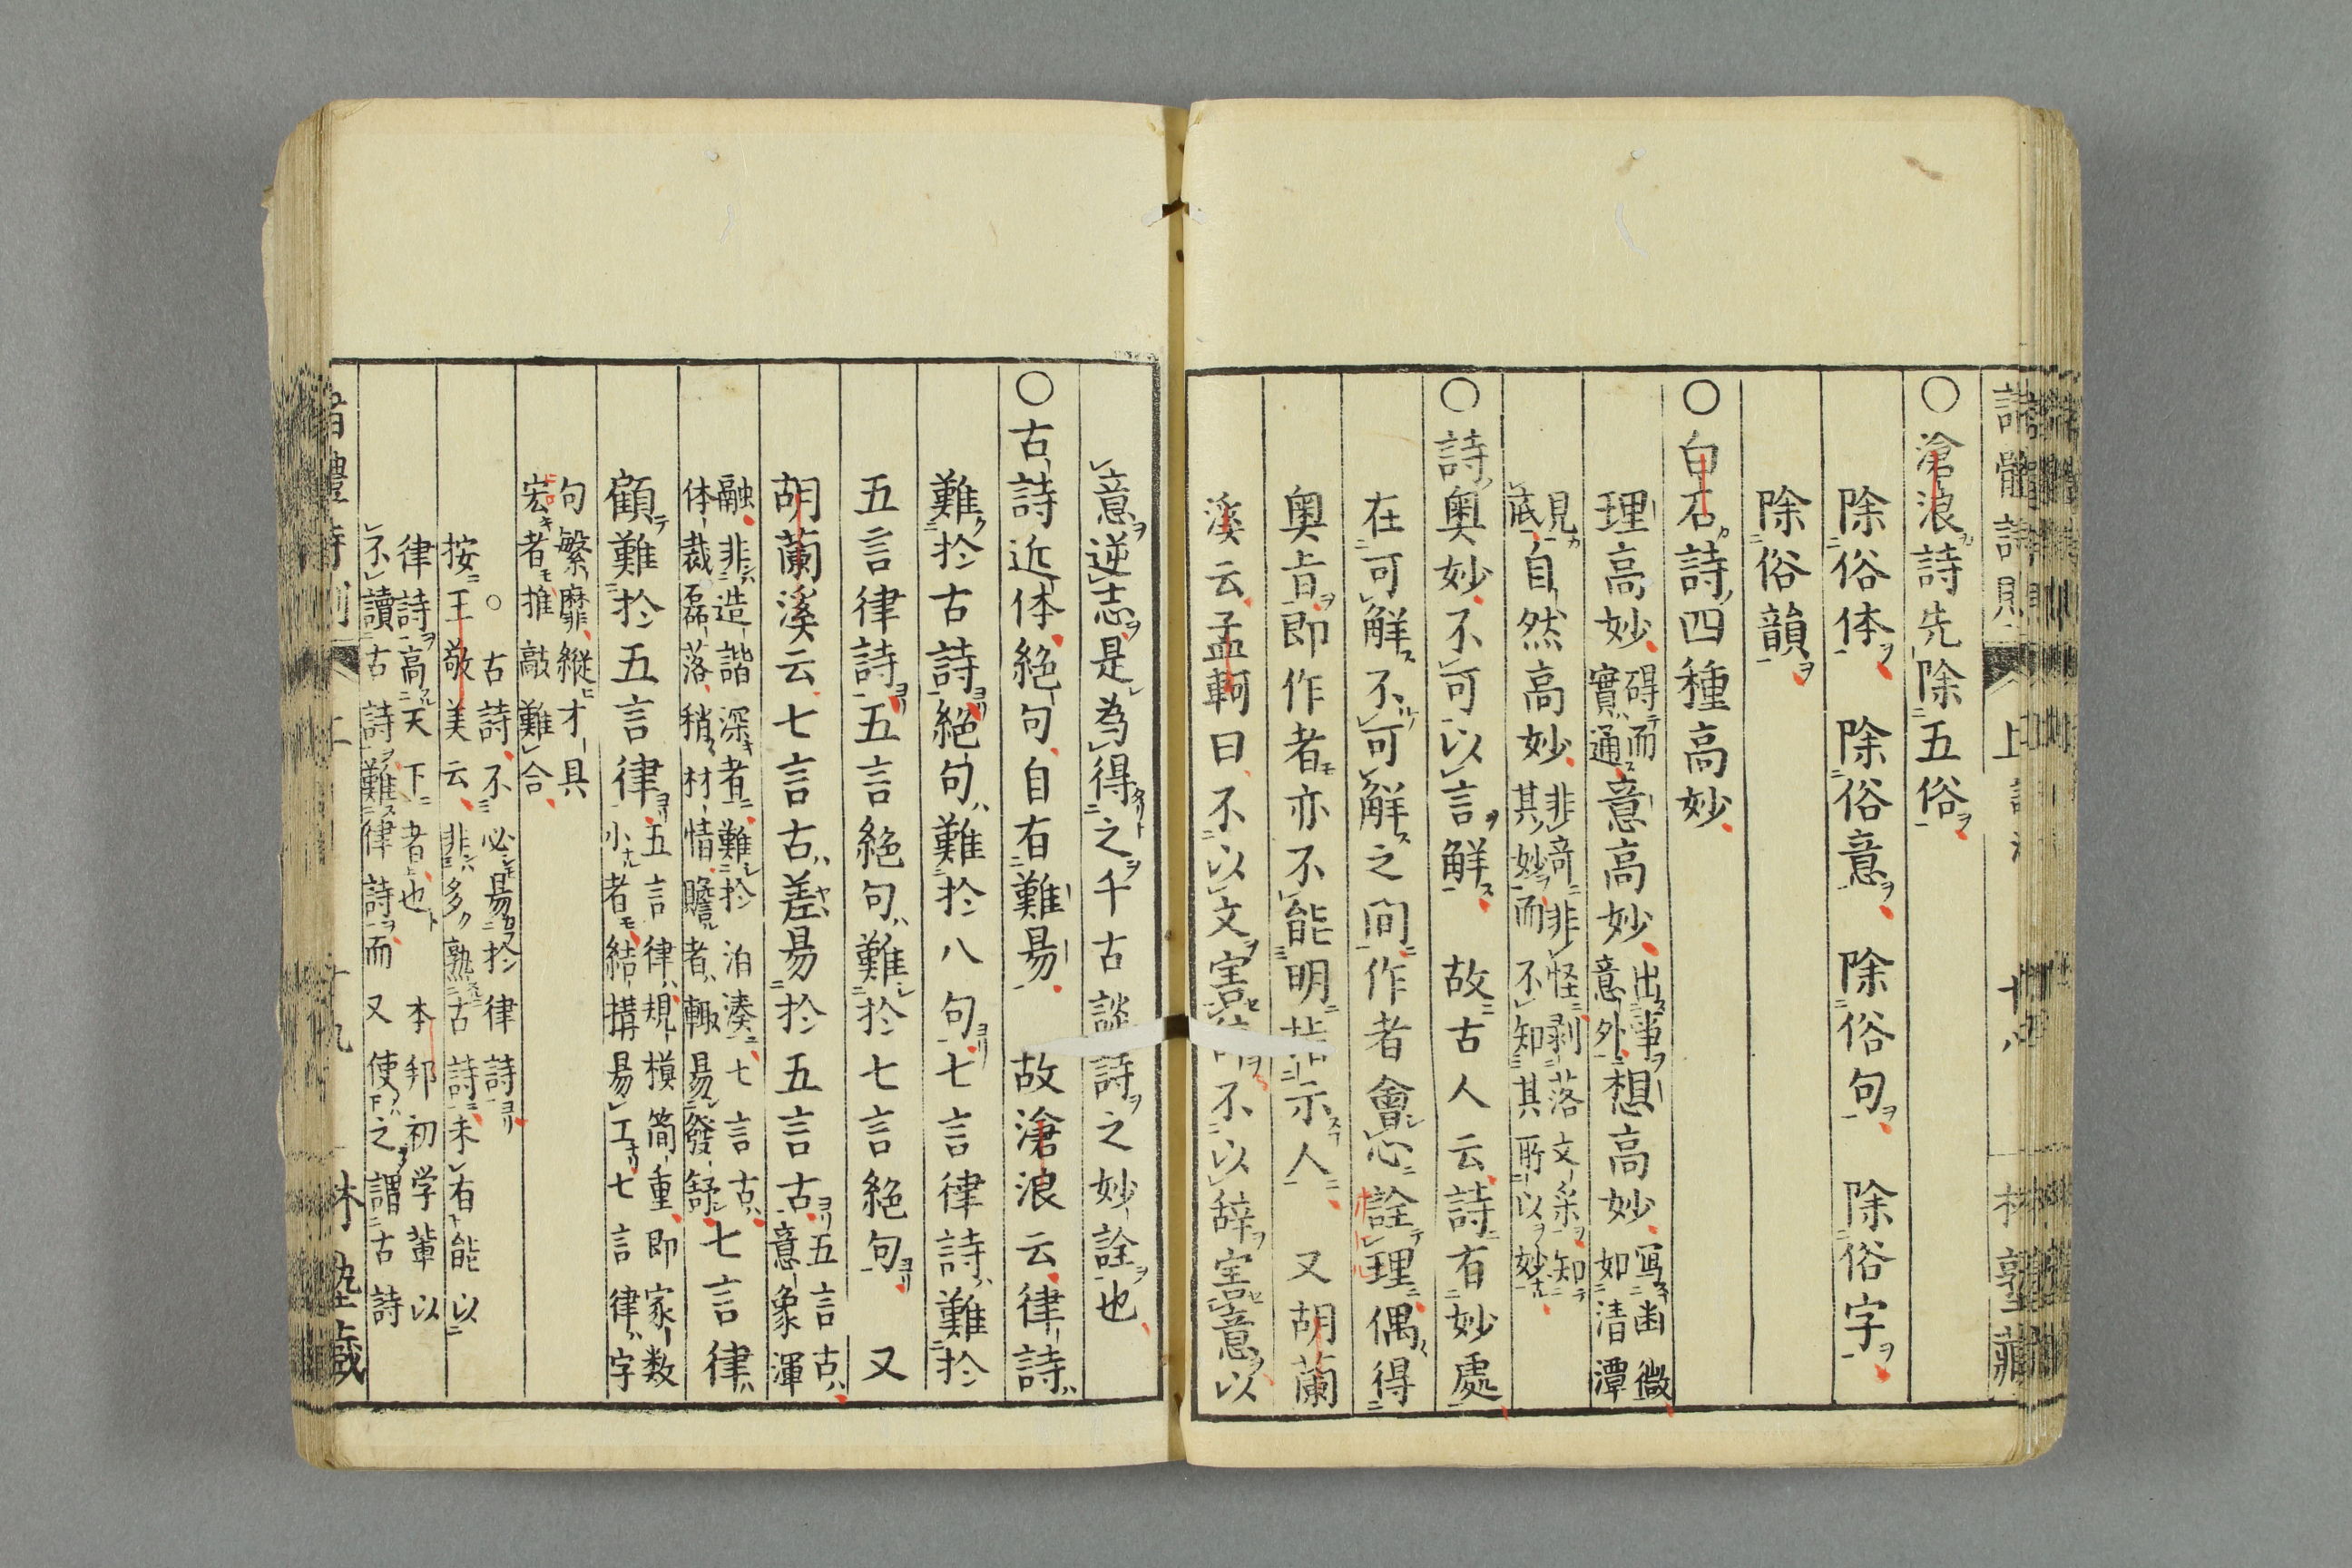 ○滄浪詩先除五俗
除俗体　除俗意　除俗句　除俗字
除俗韻
○白石詩四種高妙
理高妙 碍而實通 意高妙 出事意外 想高妙 寫出幽微如清潭
見底 自然高妙 非奇非怪剥落文采知其妙而不知其所以妙
○詩奥妙不可以言解　故古人云詩有妙處
在可解不可解之間作者會心詮理偶得
奥旨即作者亦不能明指示人　又胡蘭
溪云孟軻曰不以文害辞不以辞害意以
意逆志是為得之千古談詩之妙詮也
○古詩近体絶句自有難易　故滄浪云律詩
難於古詩絶句難於八句七言律詩難於
五言律詩五言絶句難於七言絶句　又
胡蘭溪云七言古差易於五言古 五言古意象渾
融非造諧深者難於泊湊七言古体裁磊落稍材情贍者輙易發舒 七言律
顧難於五言律 五言律規模簡重即家数小者結搆易工七言律字
句繁靡縦才具宏者推敲難合
○古詩不必易於律詩
按王敬美云非多熟古詩未有能以
律詩高天下者也　本邦初学輩以
不讀古詩難律詩而又使之謂古詩